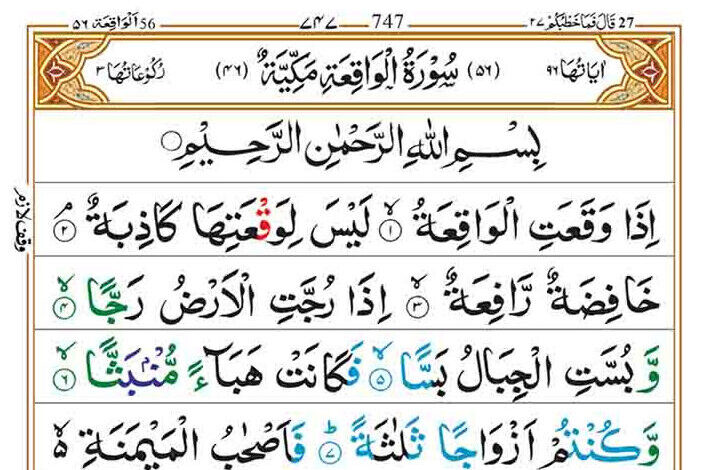 27 قَالَ فَمَا خَطْبُكُمْ ٢٧ 747 ٧٤٧ 56 اَلْوَاقِعَة ٥٦
اٰيَاتُهَا ٩٦ (٥٦) سُوْرَةُ الْوَاقِعَةِ مَكِّيَّةٌ (٤٦) رُكُوْعَاتُهَا ٣
بِسْمِ اللهِ الرَّحْمٰنِ الرَّحِيْمِ
اِذَا وَقَعَتِ الْوَاقِعَةُ ۙ‏ ١ لَيْسَ لِوَقْعَتِهَا كَاذِبَةٌ ۘ‏ ٢
وقف لازم
خَافِضَةٌ رَّافِعَةٌ ۙ‏ ٣ اِذَا رُجَّتِ الْاَرْضُ رَجًّا ۙ‏ ٤
وَّ بُسَّتِ الْجِبَالُ بَسًّا ۙ‏ ٥ فَكَانَتْ هَبَآءً مُّنْۢبَثًّا ۙ‏ ٦
وَّ كُنْتُمْ اَزْوَاجًا ثَلٰثَةً ؕ‏ ٧ فَاَصْحٰبُ الْمَيْمَنَةِ ۙ۬